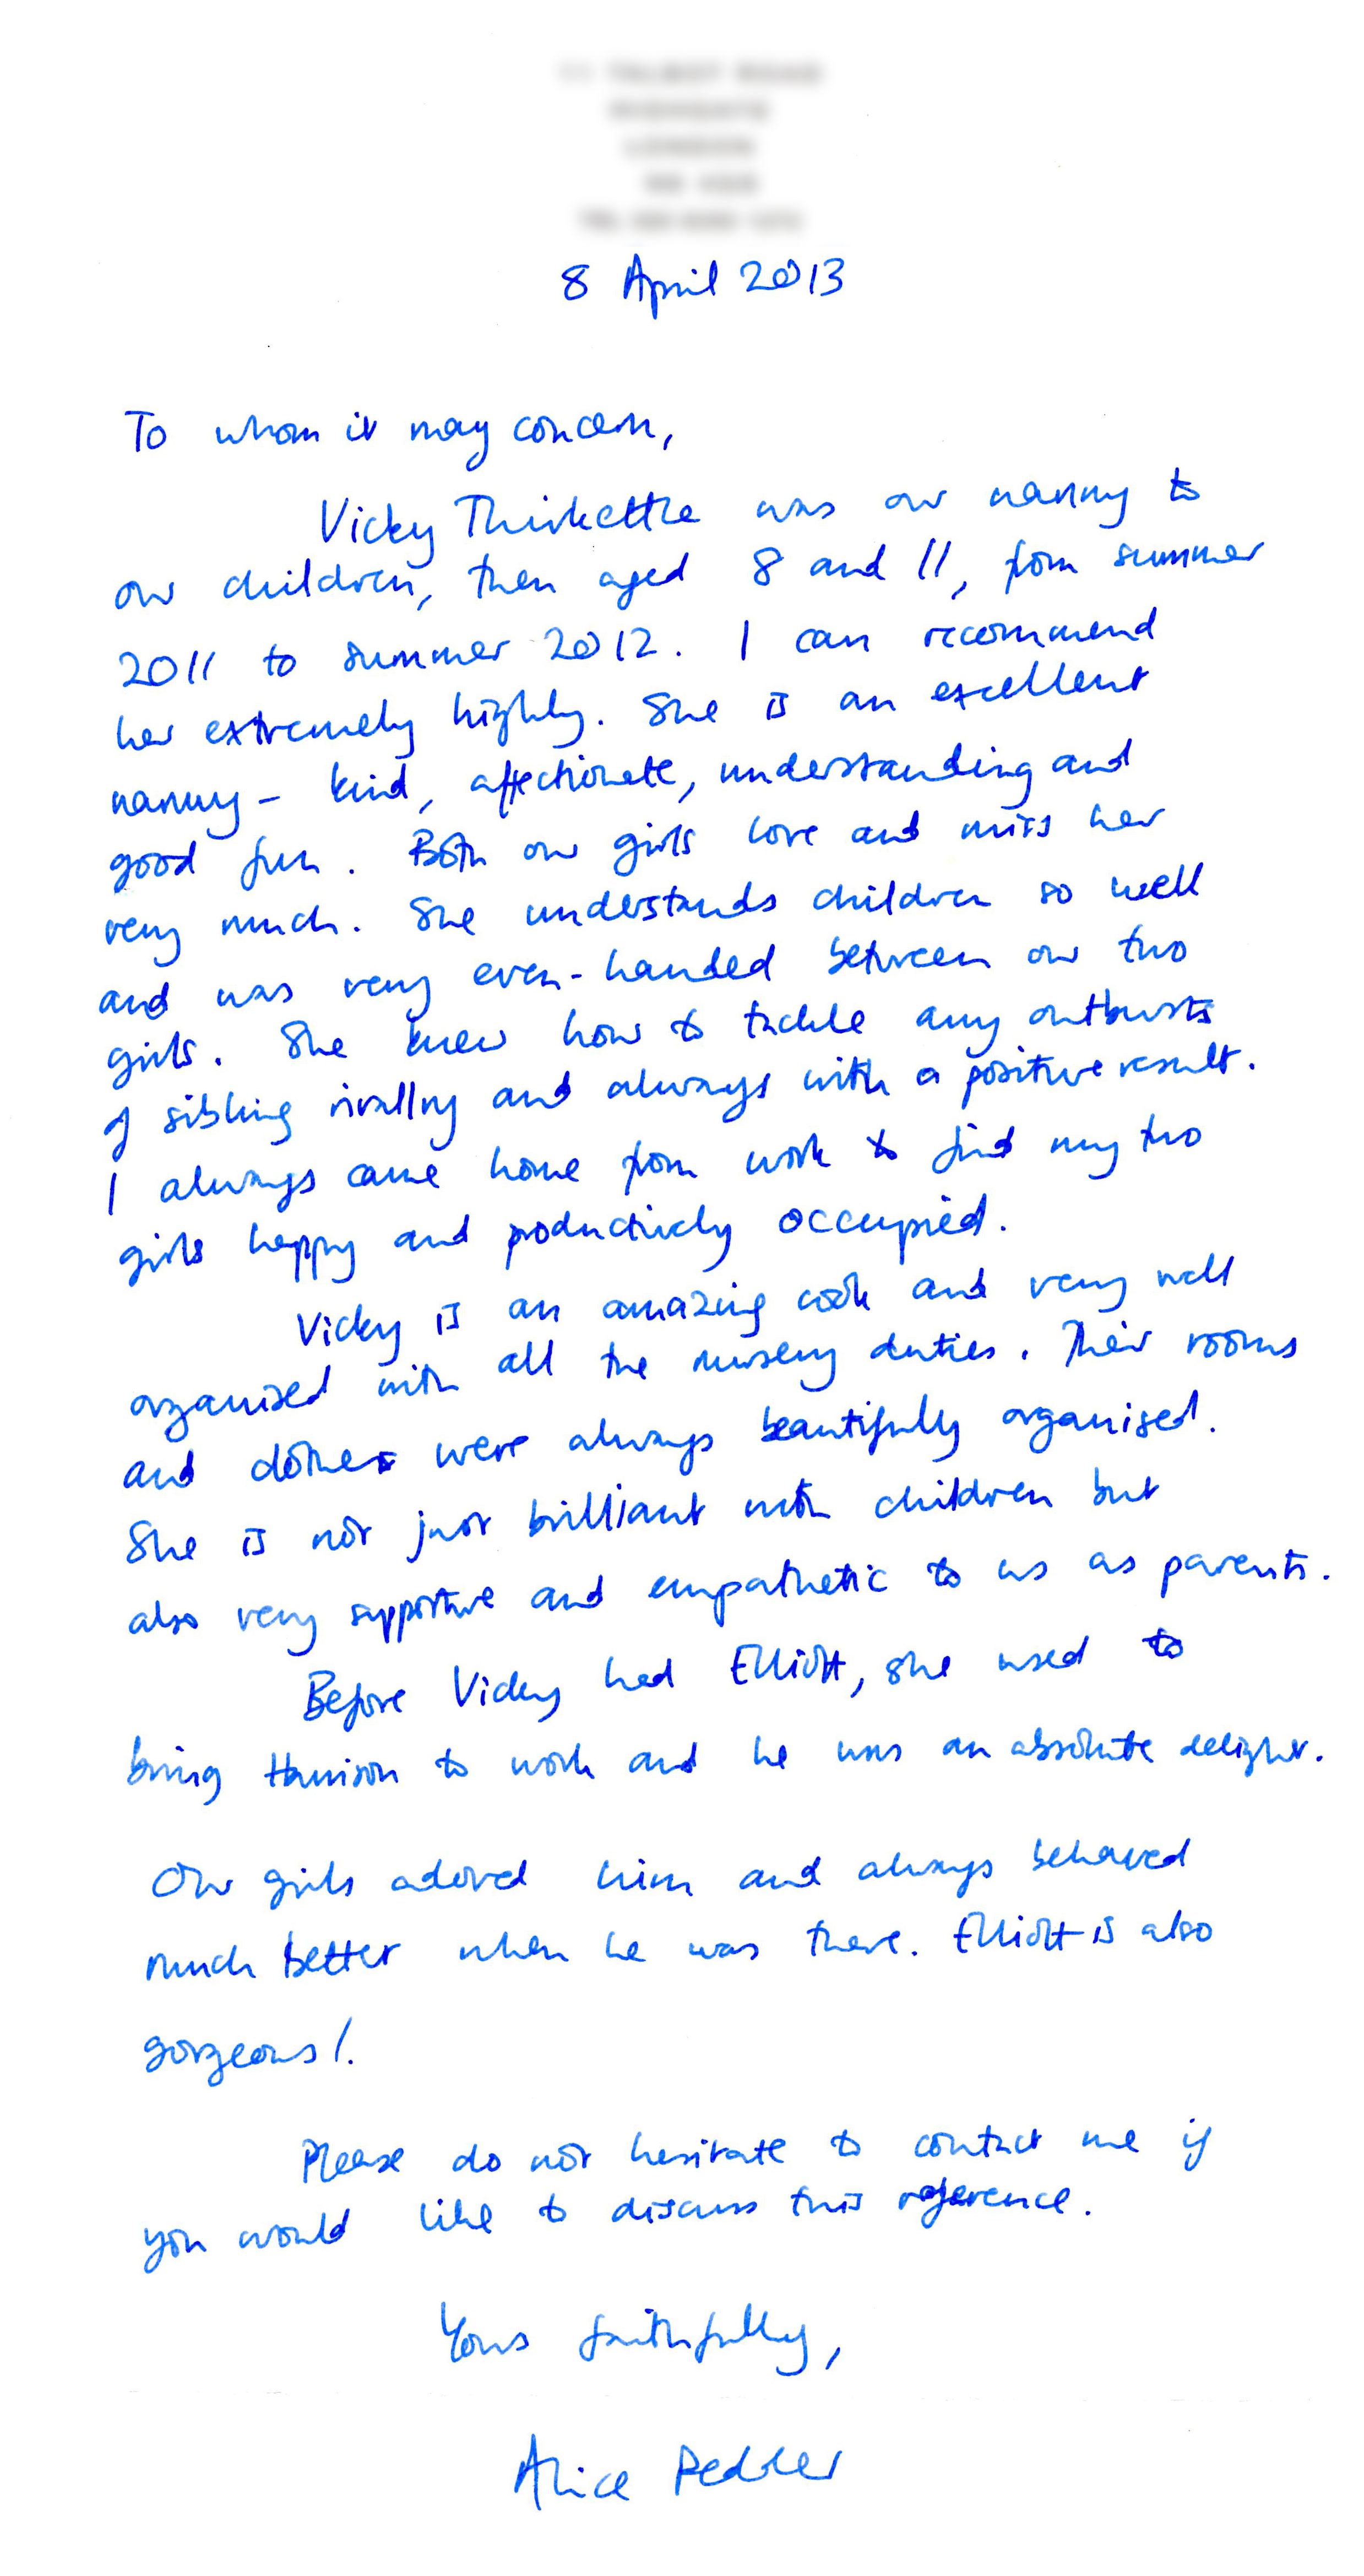 8 April 2013
To whom it may concern,
Vicky Thirkettle was our nanny to
our children, then aged 8 and 11, from summer
2011 to summer 2012. I can recommend
her extremely highly. She is an excellent
nanny - kind, affectionate, understanding and
good fun. Both our girls love and miss her
very much. She understands children so well
and was very even-handed between our two
girls. She knew how to tackle any outbursts
of sibling rivallry and always with a positive result.
I always came home from work to find my two
girls happy and productively occupied.
Vicky is an amazing cook and very well
organised with all the nursery duties. Their rooms
and clothes were always beautifully organised.
She is not just brilliant with children but
also very supportive and empathetic to us as parents.
Before Vicky had Elliott, she used to
bring Harrison to work and he was an absolute delight.
Our girls adored him and always behaved
much better when he was there. Elliott is also
gorgeous!.
Please do not hesitate to contact me if
you would like to discuss this reference.
Yours faithfully,
Alice Pedler